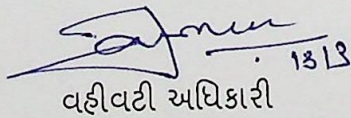 13/3
વહીવટી અધિકારી